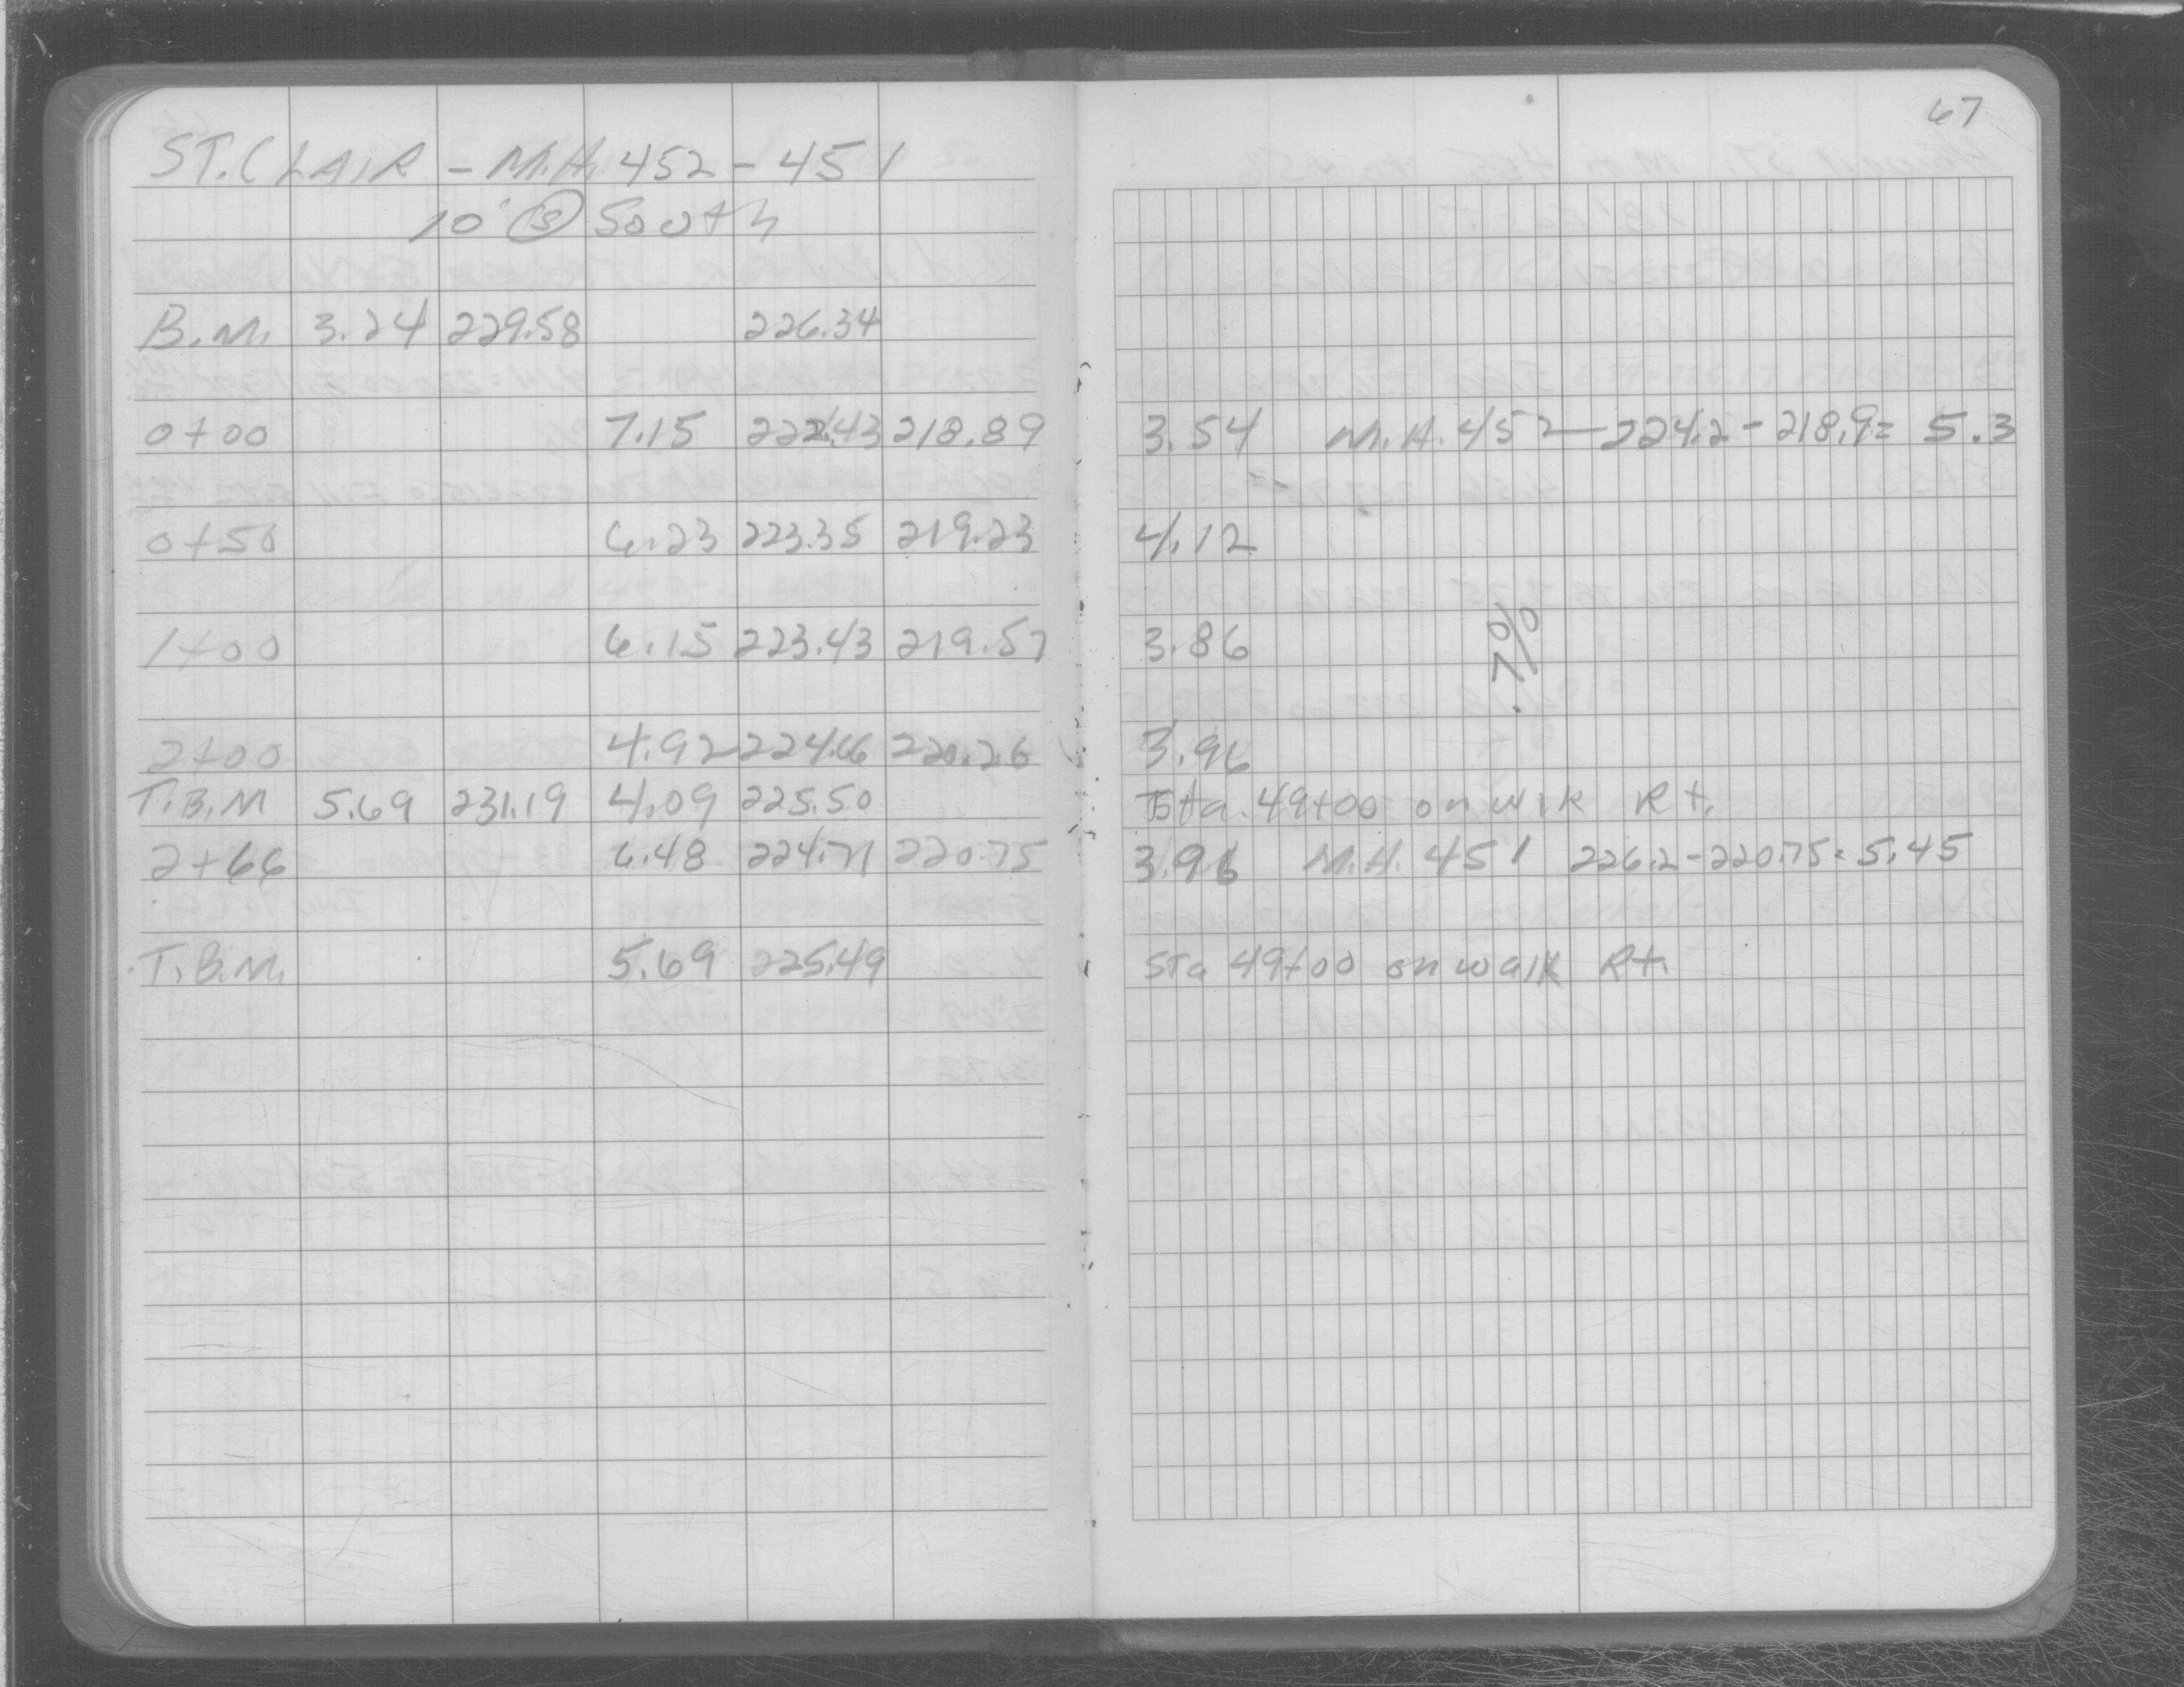 67
ST. CLAIR - M.H. 452 - 451
10' Ⓢ South
B.M. 3.24 229.58 226.34
0+00 7.15 222.43 218.89 3.54 M.H. 452 — 224.2 - 218.9 = 5.3
0+50 6.23 223.35 219.23 4.12
1+00 6.15 223.43 219.57 3.86
.7%
2+00 4.92 224.66 220.26 3.96
T.B.M 5.69 231.19 4.09 225.50 Sta. 49+00 on wlk Rt.
2+66 6.48 224.71 220.75 3.96 M.H. 451 226.2 - 220.75 = 5.45
T.B.M. 5.69 225.49 Sta 49+00 on walk Rt.